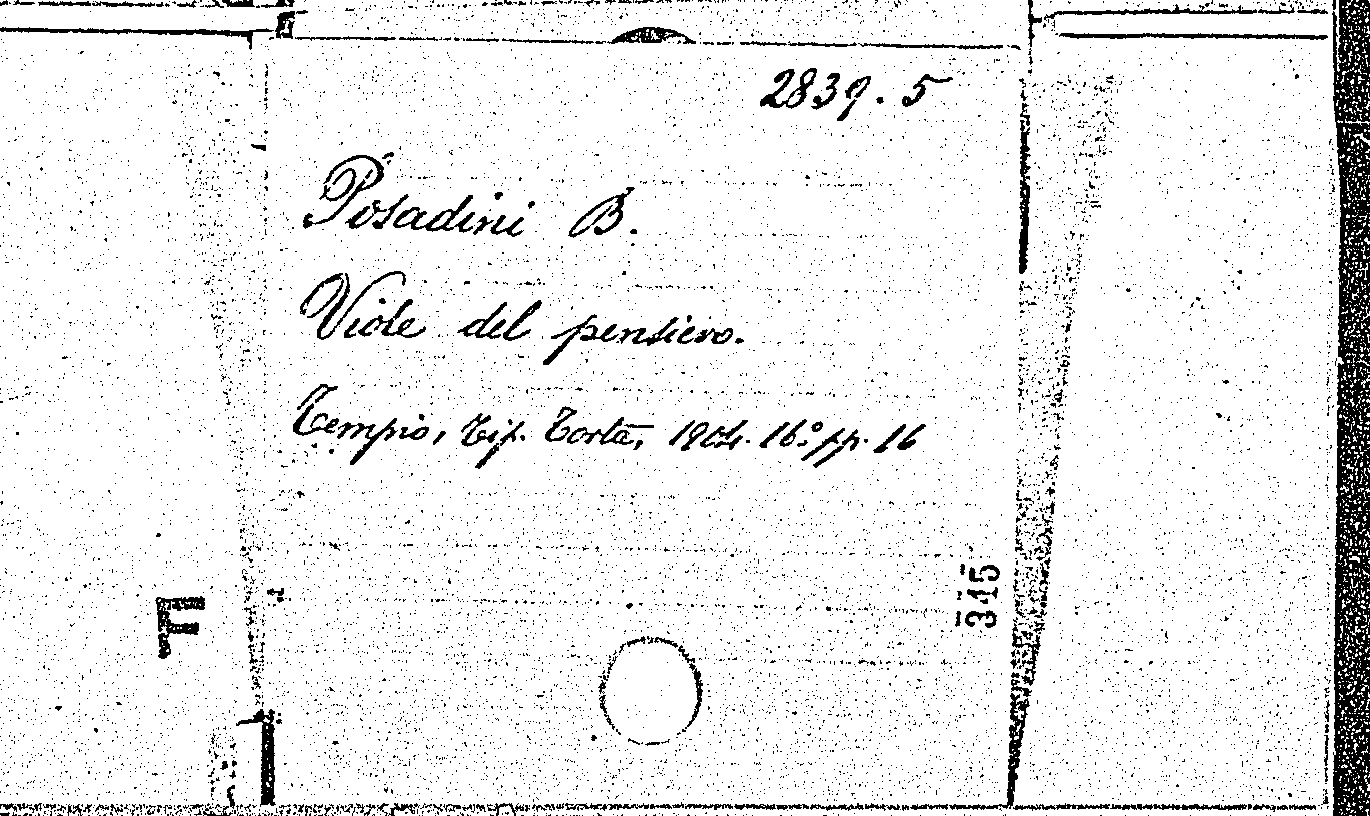 2839. 5
Posadini B.
Viole del pensiero.
Tempio, Tip. Tortu, 1904. 16.º pp. 16
345